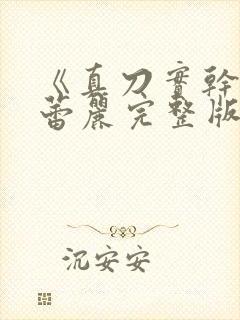 《真刀實幹
蕾麗完整版
沉安安